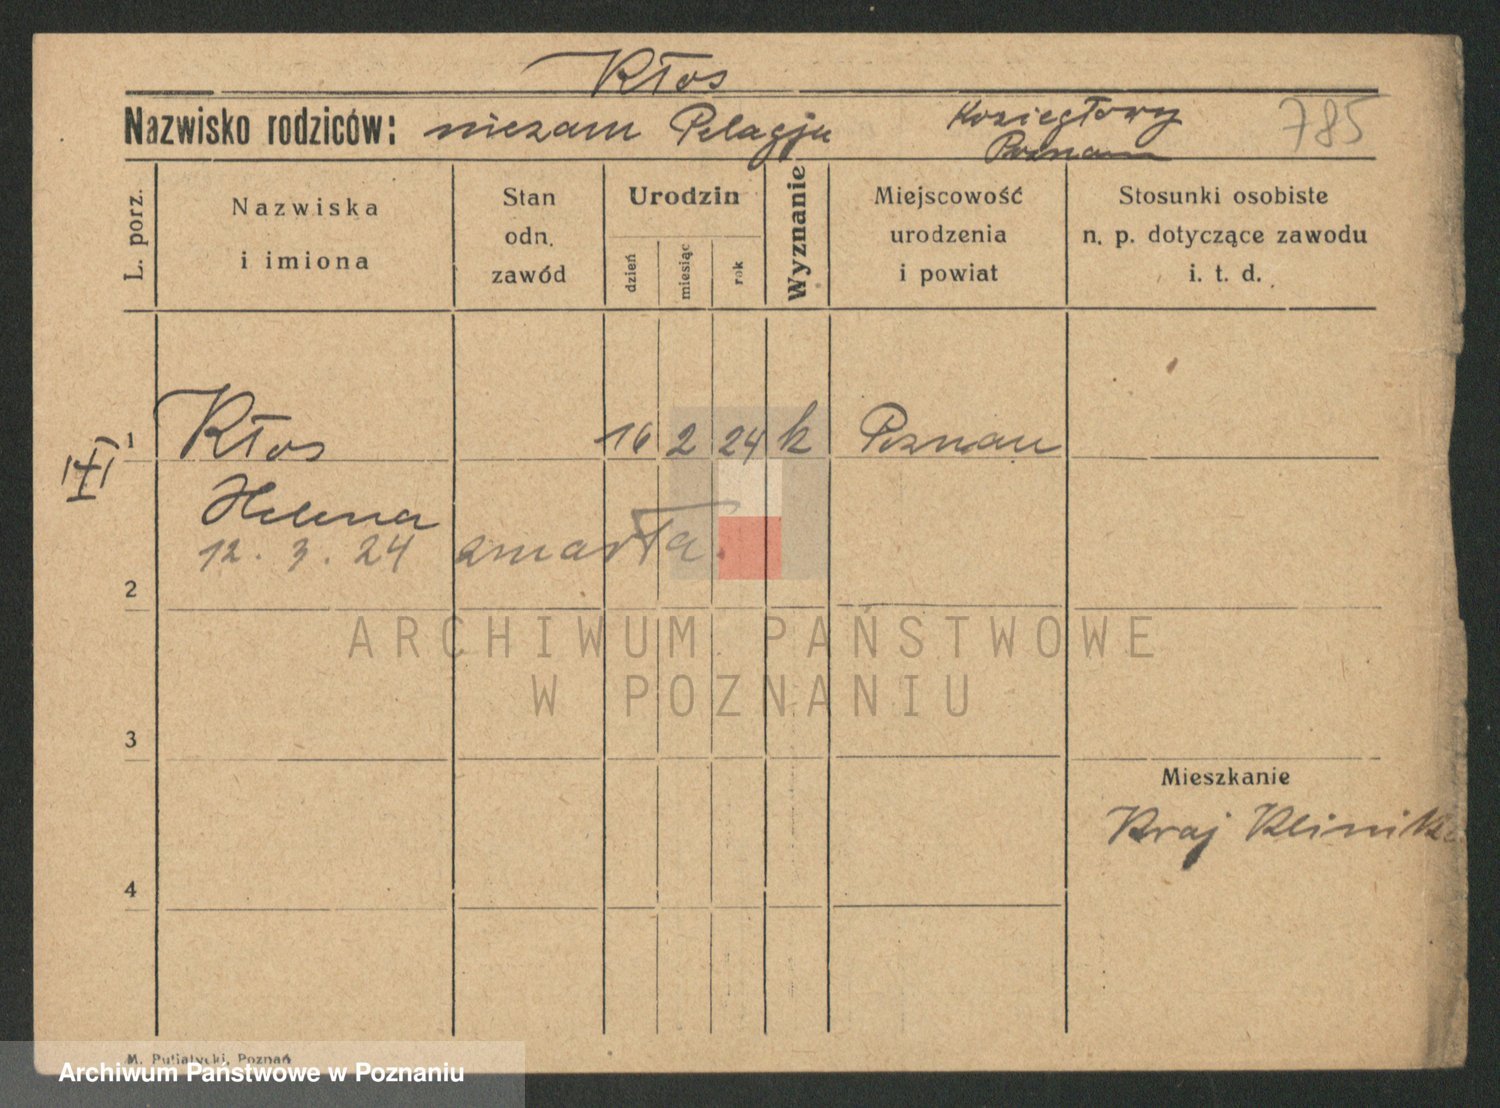 Kłos
Nazwisko rodziców: niezam Pelagju Koziegłowy 785
Poznan
L. porz.
Nazwiska
i imiona
Stan
odn.
zawód
Urodzin
dzień
miesiąc
rok
Wyznanie
Miejscowość
urodzenia
i powiat
Stosunki osobiste
n. p. dotyczące zawodu
i. t. d.
1 Kłos 16 2 24 k Poznan
Helena
12. 3. 24 zmarła.
2
ARCHIWUM PAŃSTWOWE
W POZNANIU
3
Mieszkanie
Kraj Klinika
4
M. Putiatycki, Poznań
Archiwum Państwowe w Poznaniu